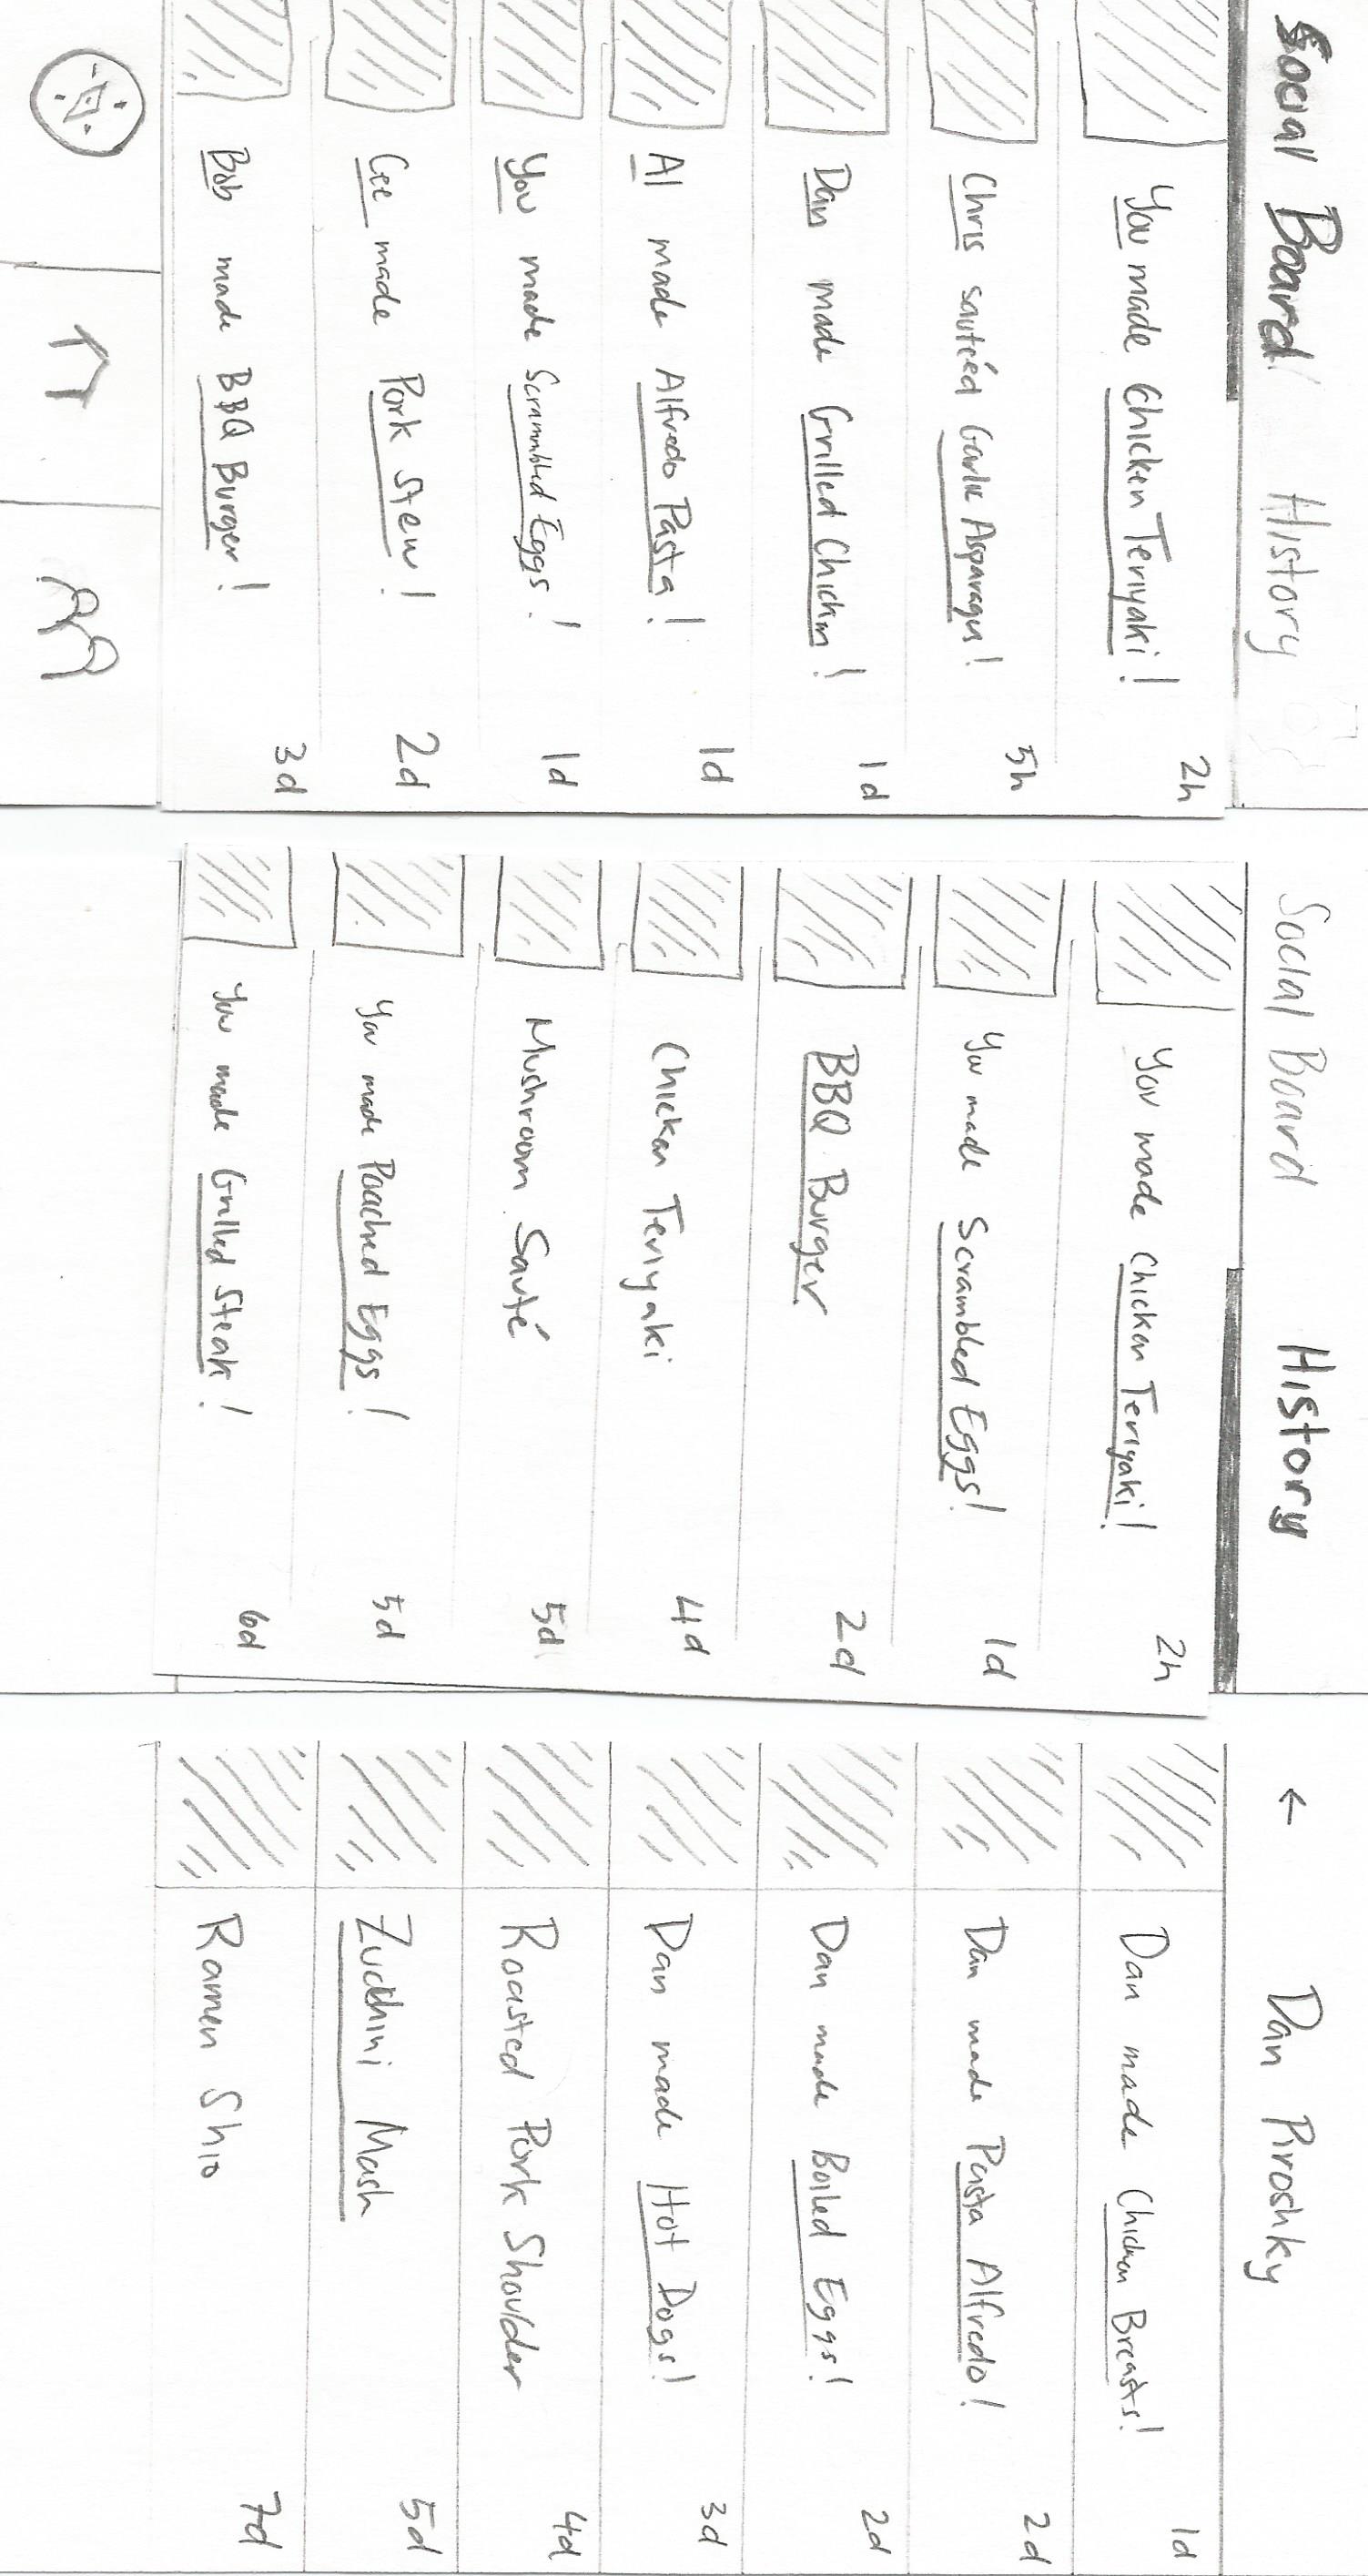 Social Board History
2h
You made Chicken Teriyaki!
5h
Chris sautéed Garlic Asparagus!
1d
Dan made Grilled Chicken!
1d
Al made Alfredo Pasta!
1d
You made Scrammbled Eggs!
2d
Cee made Pork Stew!
3d
Bob made BBQ Burger!
Social Board History
2h
You made Chicken Teriyaki!
1d
You made Scrambled Eggs!
2d
BBQ Burger
4d
Chicken Teriyaki
5d
Mushroom Sauté
5d
You made Poached Eggs!
6d
You made Grilled Steak!
← Dan Piroshky
1d
Dan made Chicken Breasts!
2d
Dan made Pasta Alfredo!
2d
Dan made Boiled Eggs!
3d
Dan made Hot Dogs!
4d
Roasted Pork Shoulder
5d
Zucchini Mash
7d
Ramen Shio